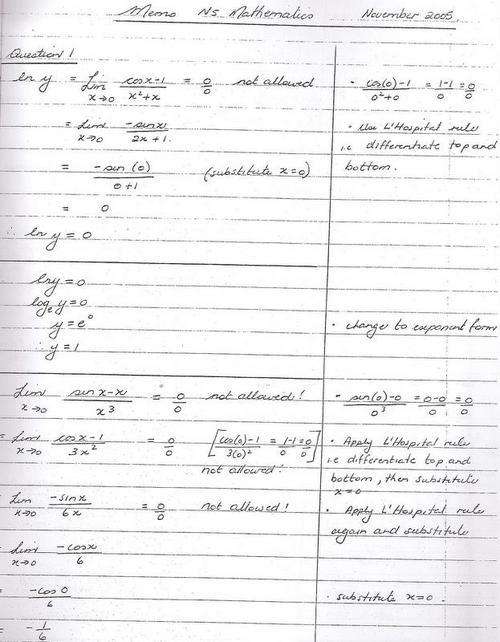 Memo N5 Mathematics November 2005
Question 1
ln y = Lim x→0 (cosx-1)/(x²+x) = 0/0 not allowed
· (cos(0)-1)/(0²+0) = (1-1)/0 = 0/0
= Lim x→0 (-sinx)/(2x+1)
· Use L'Hospital rule
i.e differentiate top and
bottom.
= (-sin(0))/(0+1) (substitute x=0)
= 0
∴ ln y = 0
lny = 0
logₑ y = 0
y = e⁰
· change to exponent form
∴ y = 1
Lim x→0 (sinx-x)/x³ = 0/0 not allowed!
· (sin(0)-0)/0³ = (0-0)/0 = 0/0
= Lim x→0 (cosx-1)/3x² = 0/0 [(cos(0)-1)/3(0)² = (1-1)/0 = 0/0]
not allowed!
· Apply L'Hospital rule
i.e differentiate top and
bottom, then substitute
x=0
Lim x→0 (-sinx)/6x = 0/0 not allowed!
· Apply L'Hospital rule
again and substitute
Lim x→0 (-cosx)/6
= (-cos0)/6
· substitute x=0.
= -1/6